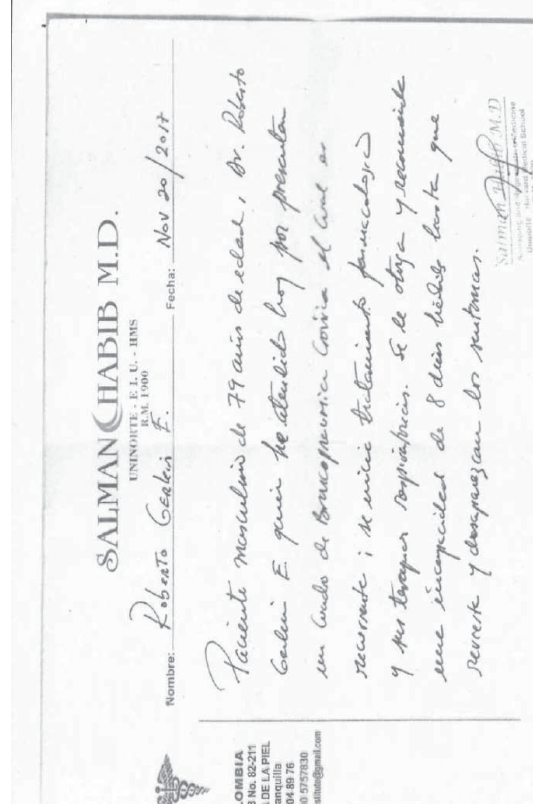 SALMAN CHABIB M.D.
UNINORTE - E.I.U. - HMS
R.M. 1900
Nombre: Roberto Gerlein E. Fecha: Nov 20/2017
Paciente masculino de 79 años de edad, Dr. Roberto
Gerlein E. quien fue atendido hoy por presentar
un cuadro de Bronconeumonia el cual es
recurrente; se inicia tratamiento farmacologico
y sus terapias respiratorias. Se le otorga y recomienda
una incapacidad de 8 dias habiles hasta que
revierta y desaparezcan los sintomas.
Salman M.D
Medical School
OMBIA
No. 82-211
DE LA PIEL
anquilla
04 89 76
5757830
stitute@gmail.com